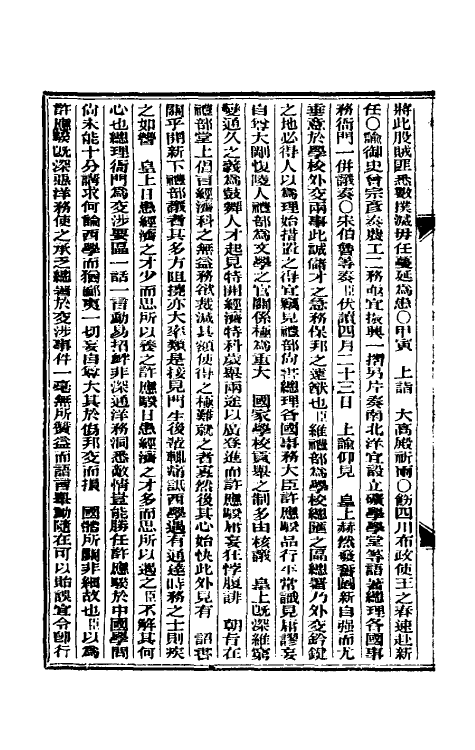 將此股賊匪悉數撲滅毋任蔓延為患〇甲寅　上詣　大高殿祈雨〇飭四川布政使王之春速赴新
任〇諭御史曾宗彥奏農工二務亟宜振興一摺另片奏南北洋宜設立礦學學堂等語著總理各國事
務衙門一併議奏〇宋伯魯等奏臣伏讀四月二十三日　上諭仰見　皇上赫然發奮圖新自強而尤
垂意於學校外交兩事此誠儲才之急務保邦之遠猷也臣維禮部為學校總匯之區總署乃外交鈐鍵
之地必得人以為理始措置之得宜竊見禮部尚書總理各國事務大臣許應騤品行平常識見庸謬妄
自尊大剛愎凌人禮部為文學之官關係極為重大　國家學校貢舉之制多由核議　皇上既深維窮
變通久之義為鼓勵人才起見特開經濟特科歲舉兩途以廣登進而許應騤庸妄狂悖腹誹　朝旨在
禮部堂上倡言經濟科之無益務欲裁減其額使得之極難就之者寡然後其心始快此外見有　詔書
關乎開新下禮部議者其多方阻撓亦大率類是接見門生後輩輒痛詆西學遇有通達時務之士則疾
之如讐　皇上日患經濟之才少而思所以養之許應騤日患經濟之才多而思所以遏之臣不解其何
心也總理衙門為交涉要區一話一言動易招衅非深通洋務洞悉敵情豈能勝任許應騤於中國學問
尚未能十分講求何論西學而猶鄙夷一切妄自尊大其於傷邦交而損　國體所關非細故也臣以為
許應騤既深惡洋務使之承乏總署於交涉事件一毫無所贊益而語言舉動隨在可以貽誤宜令即行